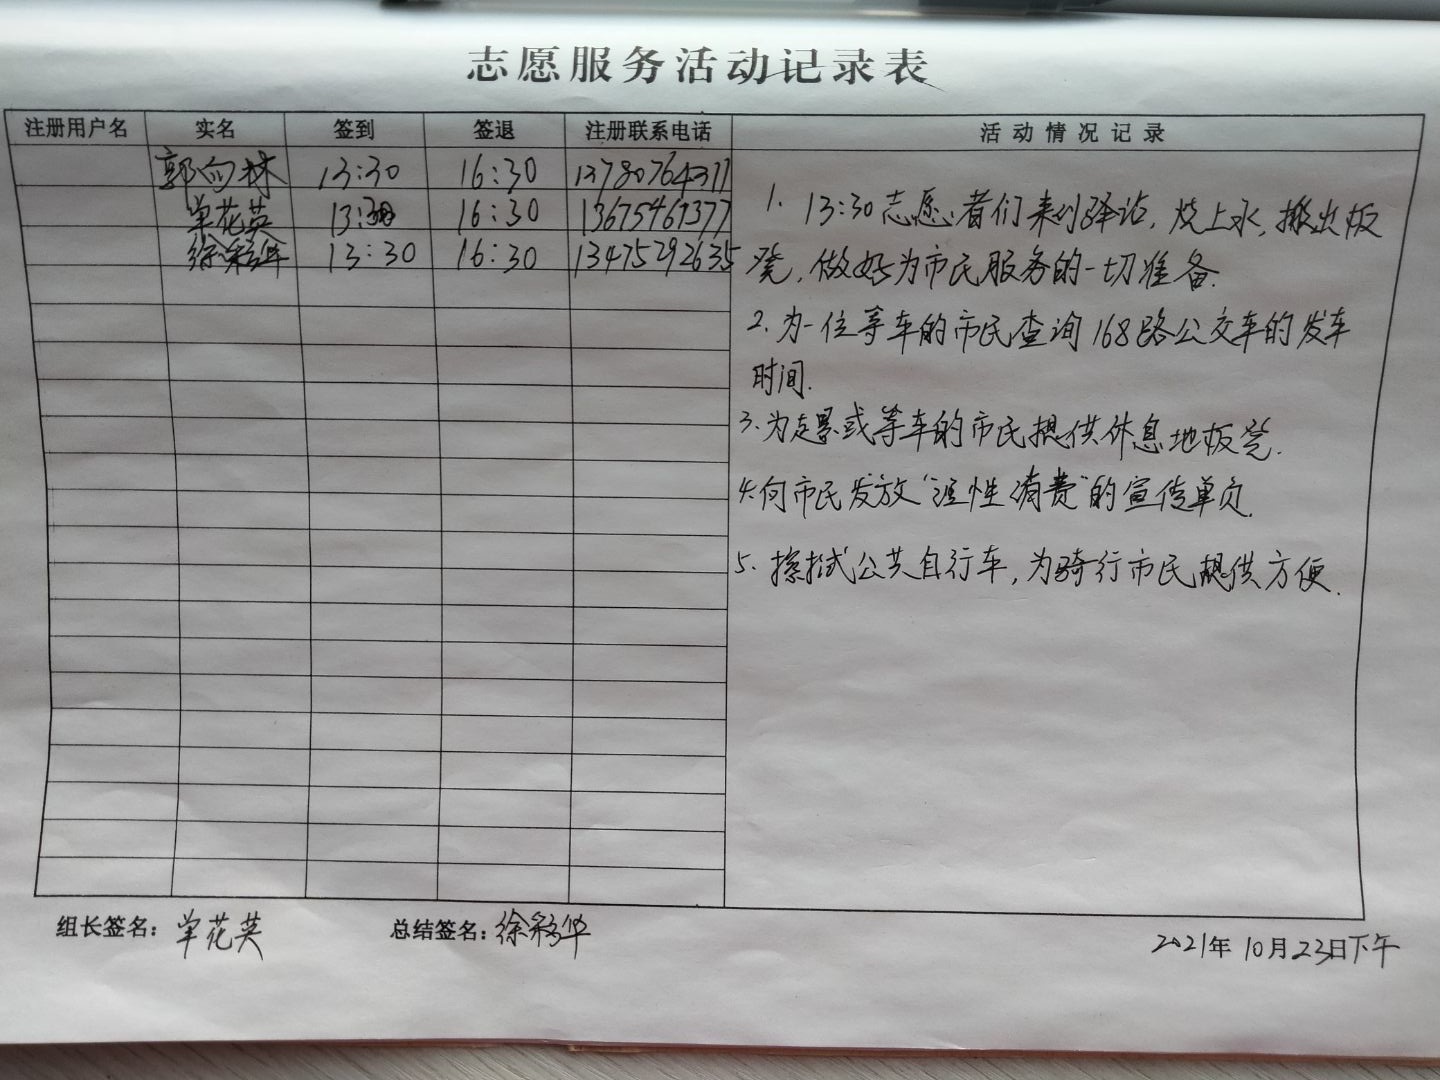 志愿服务活动记录表
注册用户名 实名 签到 签退 注册联系电话 活动情况记录
郭向林 13:30 16:30 13780764377
单花英 13:30 16:30 13675467377
徐彩华 13:30 16:30 13475292635
1. 13:30志愿者们来到驿站,烧上水,搬出板
凳,做好为市民服务的一切准备.
2.为一位等车的市民查询168路公交车的发车
时间.
3.为走累或等车的市民提供休息地板凳.
4.向市民发放“理性消费”的宣传单页.
5.擦拭公共自行车,为骑行市民提供方便.
组长签名:单花英 总结签名:徐彩华
2021年10月23日下午